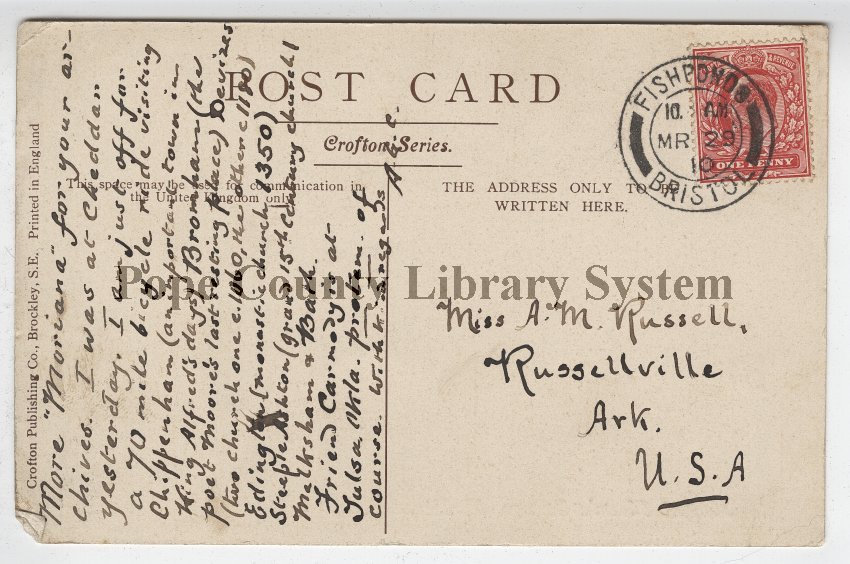 POST CARD
Crofton Series.
This space may be used for communication in
the United Kingdom only.
THE ADDRESS ONLY TO BE
WRITTEN HERE.
Crofton Publishing Co., Brockley, S.E. Printed in England
FISHPONDS
10. AM
MR 29
10
BRISTOL
REVENUE
ONE PENNY
Pope County Library System
More "Moriana" for your ar-
chives. I was at Cheddar
yesterday. I am just off for
a 70 mile bicycle ride visiting
Chippenham (an important town in
King Alfred's days) Bromham (the
poet Moore's last resting place) Devizes
(two churches one c. 1060, the other c 1180)
Edington (monastic church, 1350)
Steeple Ashton (grand 15th century church)
Melksham & Bath.
Friend Carmody is at
Tulsa. Okla. protem. of
course. With k. regards
Miss A. M. Russell,
Russellville
Ark.
U.S.A